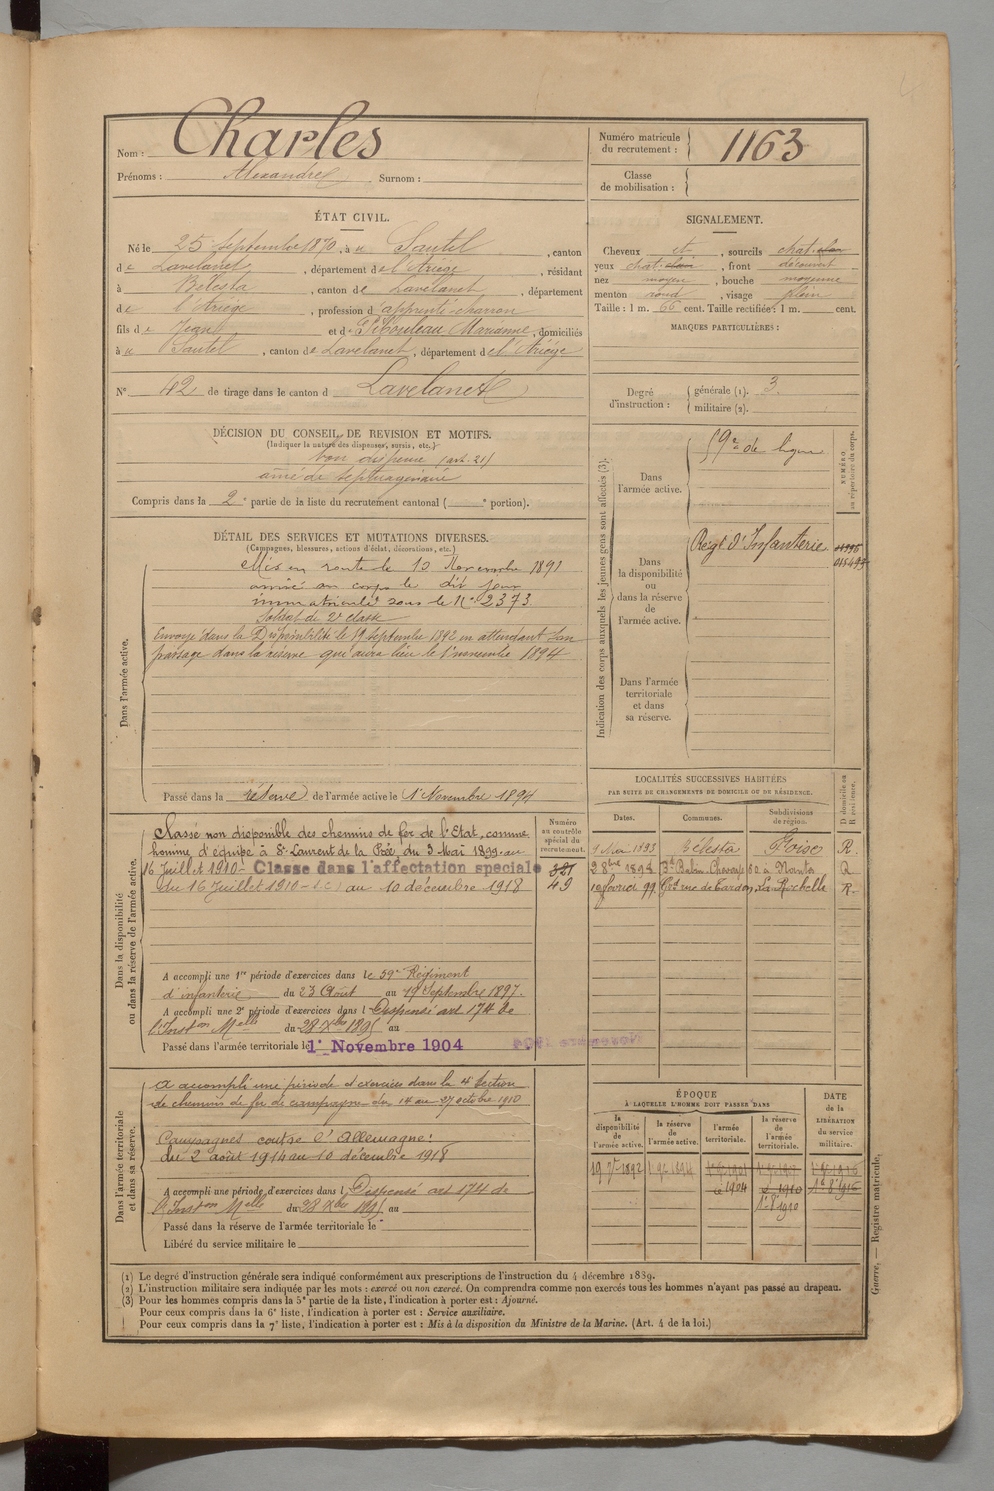 Nom : Charles
Prénoms : Alexandre Surnom :
Numéro matricule du recrutement : 1163
Classe de mobilisation :
ÉTAT CIVIL.
Né le 25 septembre 1870, à Sautel, canton
de Lavelanet, département de l'Ariège, résidant
à Bélesta, canton de Lavelanet, département
de l'Ariège, profession d'apprenti charron
fils de Jean et de Marianne, domiciliés
à Sautel, canton de Lavelanet, département de l'Ariège
N° 42 de tirage dans le canton d Lavelanet
SIGNALEMENT.
Cheveux et, sourcils chat. clair
yeux chat. clair, front découvert
nez moyen, bouche moyenne
menton rond, visage plein
Taille : 1 m. 66 cent. Taille rectifiée : 1 m. cent.
MARQUES PARTICULIÈRES :
Degré d'instruction : générale (1). 3.
militaire (2).
DÉCISION DU CONSEIL DE REVISION ET MOTIFS.
(Indiquer la nature des dispenses, sursis, etc.)
bon dispensé (art. 21)
ainé de septuagénaire
Compris dans la 2e partie de la liste du recrutement cantonal ( e portion).
DÉTAIL DES SERVICES ET MUTATIONS DIVERSES.
(Campagnes, blessures, actions d'éclat, décorations, etc.)
Dans l'armée active.
Mis en route le 10 Novembre 1891
arrivé au corps le dit jour
immatriculé sous le N° 2373
soldat de 2e classe
Envoyé dans la Disponibilité le 19 septembre 1892 en attendant son
passage dans la réserve qui aura lieu le 1er novembre 1894
Passé dans la réserve de l'armée active le 1er Novembre 1894
Indication des corps auxquels les jeunes gens sont affectés (3).
NUMÉRO au répertoire du corps.
Dans l'armée active.
59e de ligne
Dans la disponibilité ou dans la réserve de l'armée active.
Régt d'Infanterie
Dans l'armée territoriale et dans sa réserve.
Dans la disponibilité ou dans la réserve de l'armée active.
Classé non disponible des chemins de fer de l'Etat, comme
homme d'équipe à St Laurent de la Prée, du 3 Mai 1899 au
16 Juillet 1910 - Classé dans l'affectation spéciale
du 16 Juillet 1910 au 10 décembre 1918
Numéro au contrôle spécial du recrutement.
321
49
A accompli une 1re période d'exercices dans le 59e Régiment
d'infanterie du 23 Août au 19 Septembre 1897.
A accompli une 2e période d'exercices dans l Dispensé art 174 de
l'Inston Melle du 28 Xbre 1895 au
Passé dans l'armée territoriale le 1er Novembre 1904
LOCALITÉS SUCCESSIVES HABITÉES
PAR SUITE DE CHANGEMENTS DE DOMICILE OU DE RÉSIDENCE.
Dates. Communes. Subdivisions de région. D domicile ou R résidence.
1893 Bélesta Foix R.
1898 à Nantes R
10 février 99 La Rochelle R.
Dans l'armée territoriale et dans sa réserve.
a accompli une période d'exercices dans la 4e Section
de chemins de fer de campagne du 14 au 27 octobre 1910
Campagnes contre l'Allemagne :
du 2 août 1914 au 10 décembre 1918
A accompli une période d'exercices dans l Dispensé art 174 de
l'Inston Melle du 28 Xbre 1895 au
Passé dans la réserve de l'armée territoriale le
Libéré du service militaire le
ÉPOQUE
À LAQUELLE L'HOMME DOIT PASSER DANS
la disponibilité de l'armée active. la réserve de l'armée active. l'armée territoriale. la réserve de l'armée territoriale.
DATE de la LIBÉRATION du service militaire.
19 7bre 1892 1er 9bre 1894
1904 1910
1er 8bre 1910
(1) Le degré d'instruction générale sera indiqué conformément aux prescriptions de l'instruction du 4 décembre 1889.
(2) L'instruction militaire sera indiquée par les mots : exercé ou non exercé. On comprendra comme non exercés tous les hommes n'ayant pas passé au drapeau.
(3) Pour les hommes compris dans la 5e partie de la liste, l'indication à porter est : Ajourné.
Pour ceux compris dans la 6e liste, l'indication à porter est : Service auxiliaire.
Pour ceux compris dans la 7e liste, l'indication à porter est : Mis à la disposition du Ministre de la Marine. (Art. 4 de la loi.)
Guerre. — Registre matricule.